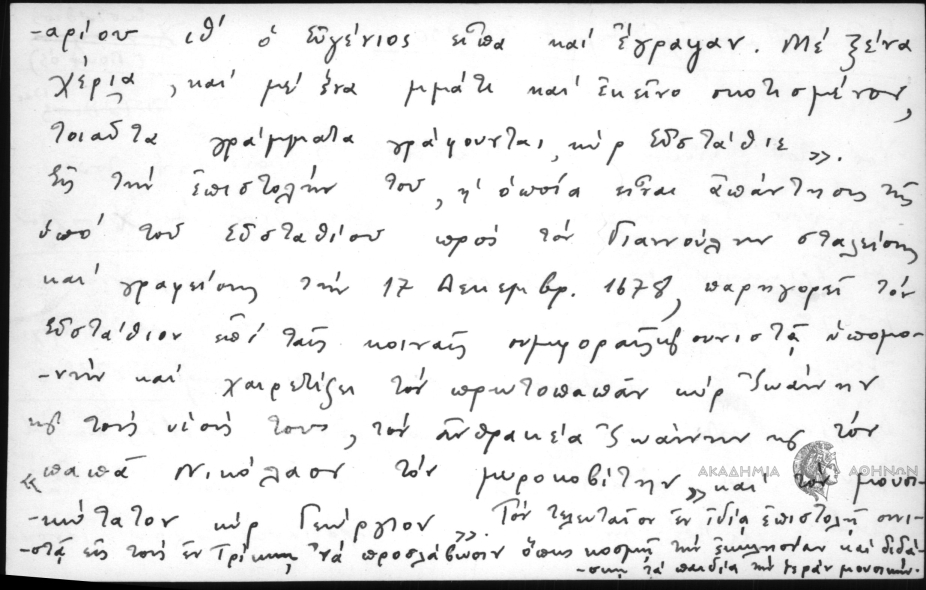 -αρίου ιθ´ ὁ Εὐγένιος εἶπα καί ἔγραψαν. Μέ ξένα
χέρια, καί μέ ἕνα μμάτι καί ἐκεῖνο σκοτισμένον,
τοιαῦτα γράμματα γράφουνται, κύρ Εὐστάθιε».
Εἰς τήν ἐπιστολήν του, ἡ ὁποία εἶναι ἀπάντησις τῆς
ὑπό τοῦ Εὐσταθίου πρός τόν Γιαννούλην σταλείσης
καί γραφείσης τήν 17 Δεκεμβρ. 1678, παρηγορεῖ τόν
Εὐστάθιον ἐπί ταῖς κοιναῖς συμφοραῖς κ̀ συνιστᾷ ὑπομο-
-νήν καί χαιρετίζει τόν πρωτοπαπᾶν κύρ Ἰωάννην
κ̀ τούς υἱούς τους, τόν ἀνθρακέα Ἰωάννην κ̀ τόν
«παπᾶ Νικόλαον τόν μυροκοβίτην» καί τόν μουσι-
-κώτατον κύρ Γεώργιον». Τόν τελευταῖον ἐν ἰδίᾳ ἐπιστολῇ συνι-
-στᾷ εἰς τούς ἐν Τρίκκῃ ἵνα προσλάβωσιν ὅπως κοσμῇ τήν ἐκκλησίαν καί διδά-
-σκῃ τά παιδία τήν ἱεράν μουσικήν.
ΑΚΑΔΗΜΙΑ ΑΘΗΝΩΝ